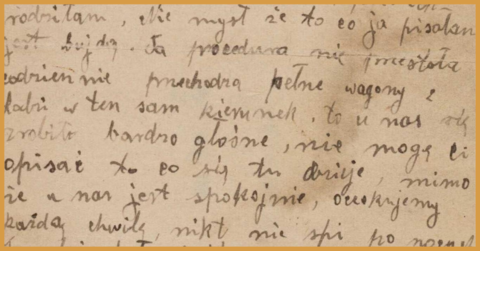 rodziłam, nie myśl że to co ja pisałam
jest bujdą. Ta procedura nie przestała
codziennie przechodzą pełne wagony z
Łabi w ten sam kierunek. to u nas się
zrobiło bardzo głośne, nie mogę ci
opisać to co się tu dzieje, mimo
że u nas jest spokojnie, oczekujemy
każdą chwilę, nikt nie śpi po nocach